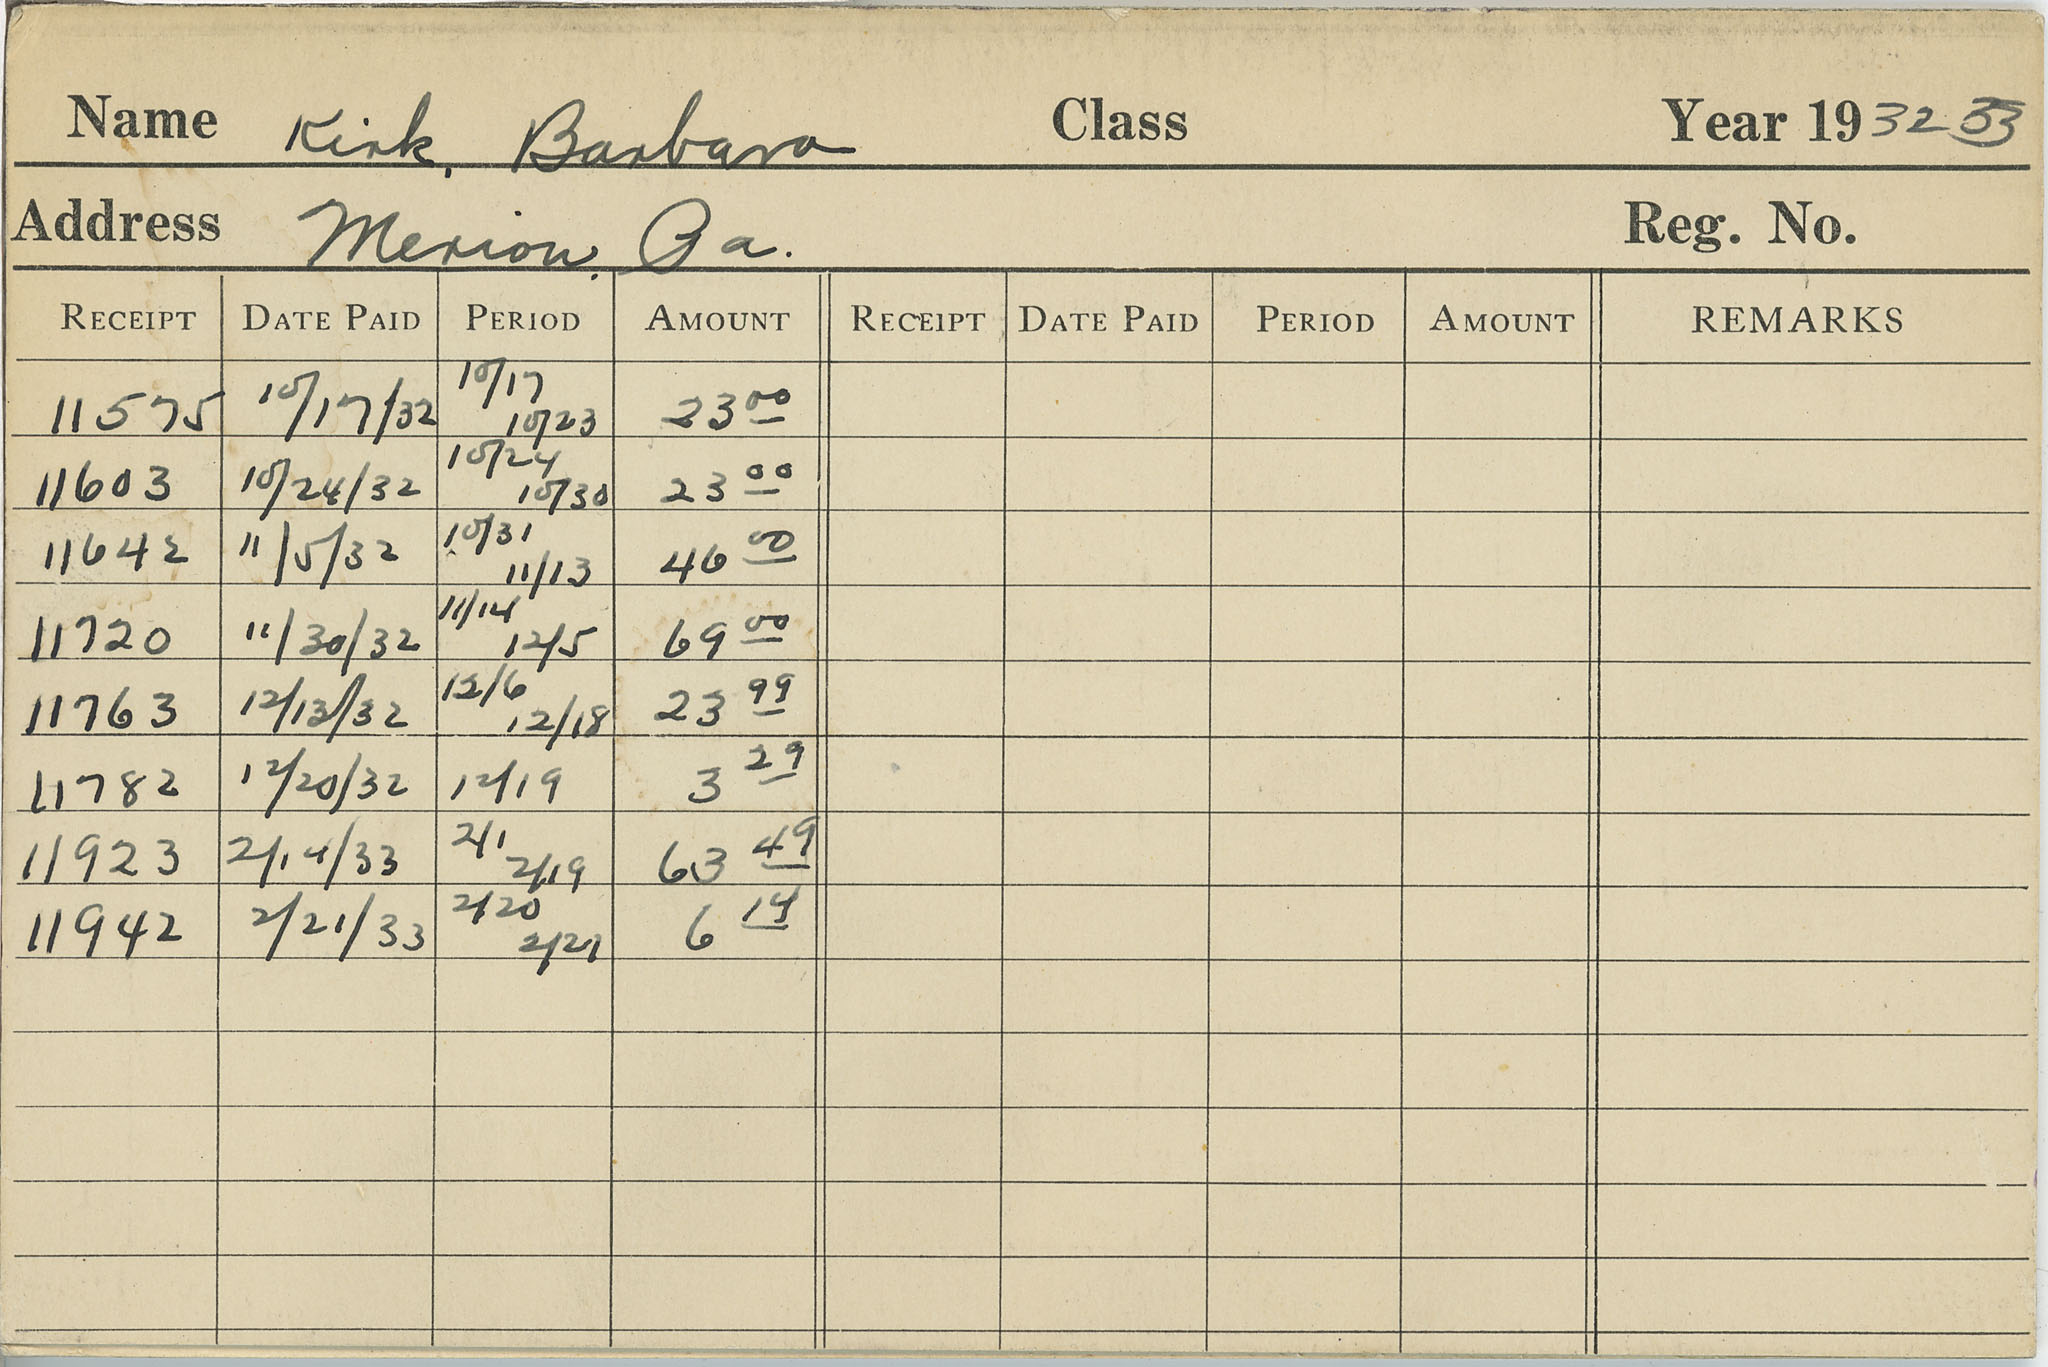 Name Kirk, Barbara Class Year 1932-33
Address Merion, Pa. Reg. No.
RECEIPT DATE PAID PERIOD AMOUNT RECEIPT DATE PAID PERIOD AMOUNT REMARKS
11575 10/17/32 10/17 10/23 23 00
11603 10/24/32 10/24 10/30 23 00
11642 11/5/32 10/31 11/13 46 00
11720 11/30/32 11/14 12/5 69 00
11763 12/13/32 12/6 12/18 23 99
11782 12/20/32 12/19 3 29
11923 2/14/33 2/1 2/19 63 49
11942 2/21/33 2/20 2/21 6 14